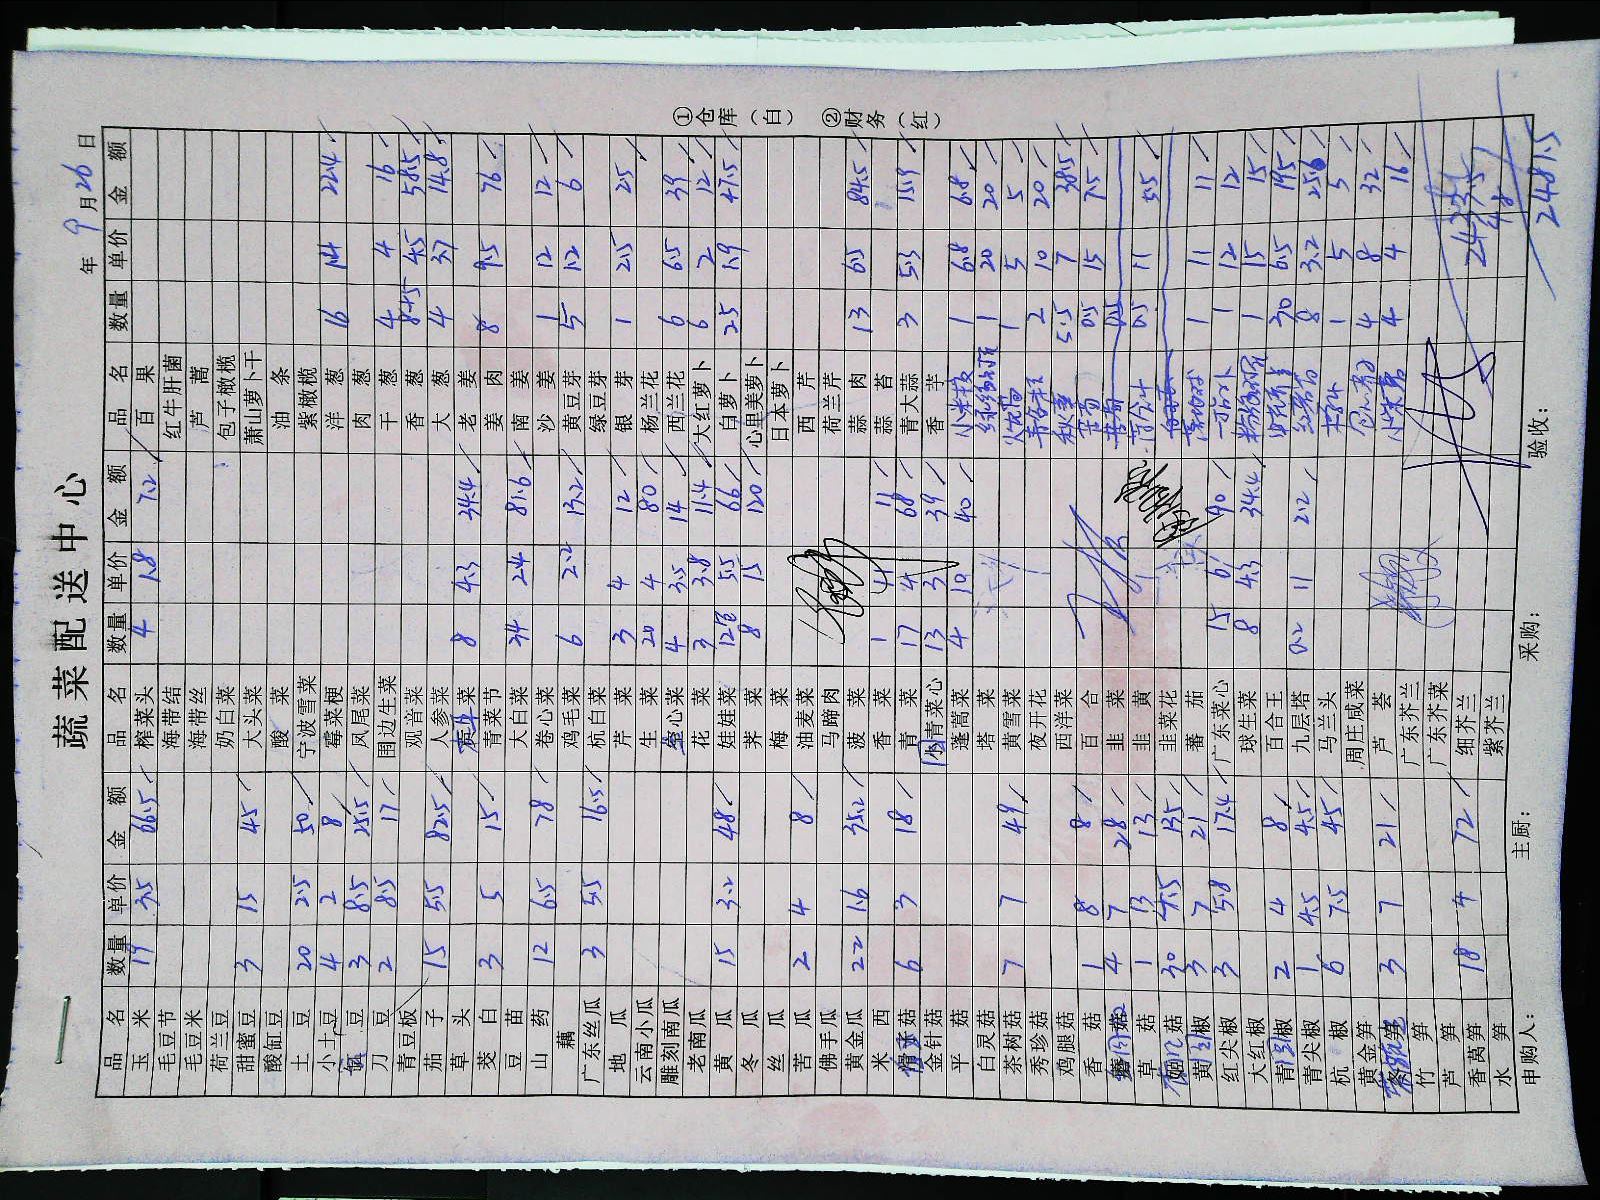 蔬菜配送中心
年 9月26日
品名 数量 单价 金额 品名 数量 单价 金额 品名 数量 单价 金额
玉米 19 3.5 66.5 榨菜头 4 1.8 7.2 百果
毛豆节 海带结 红牛肝菌
毛豆米 海带丝 芦蒿
荷兰豆 奶白菜 包子橄榄
甜蜜豆 3 15 45 大头菜 萧山萝卜干
酸缸豆 酸菜 油条
土豆 20 2.5 50 宁波雪菜 紫橄榄
小土豆 4 2 8 霉菜梗 洋葱 16 1.4 22.4
豆 3 8.5 25.5 凤尾菜 肉葱
刀豆 2 8.5 17 围边生菜 干葱 4 4 16
青豆板 观音菜 香葱 4.5 58.5
茄子 15 5.5 82.5 人参菜 大葱 4 3.7 14.8
草头 菜 8 4.3 34.4 老姜
茭白 3 5 15 青菜节 姜肉 8 9.5 76
豆苗 大白菜 34 2.4 81.6 南姜
山药 12 6.5 78 卷心菜 沙姜 1 12 12
藕 鸡毛菜 6 2.2 13.2 黄豆芽 5 1.2 6
广东丝瓜 3 5.5 16.5 杭白菜 绿豆芽
地瓜 芹菜 3 4 12 银芽 1 2.5 2.5
云南小瓜 生菜 20 4 80 杨兰花
雕刻南瓜 空心菜 4 3.5 14 西兰花 6 6.5 39
老南瓜 花菜 3 3.8 11.4 大红萝卜 6 2 12
黄瓜 15 3.2 48 娃娃菜 12包 5.5 66 白萝卜 25 1.9 47.5
冬瓜 荠菜 8 15 120 心里美萝卜
丝瓜 梅菜 日本萝卜
苦瓜 2 4 8 油麦菜 西芹
佛手瓜 马蹄肉 荷兰芹
黄金瓜 22 1.6 35.2 菠菜 蒜肉 13 6.5 84.5
米西 香菜 1 11 11 蒜苔
菇 6 3 18 青菜 17 4 68 青大蒜 3 5.3 15.9
金针菇 小青菜心 13 3 39 香芋
平菇 蓬蒿菜 4 10 40 小米椒 1 6.8 6.8
白灵菇 塔菜 1 20 20
茶树菇 7 7 49 黄雪菜 1 5 5
秀珍菇 夜开花 2 10 20
鸡腿菇 西洋菜 秋葵 5.5 7 38.5
香菇 1 8 8 百合 苦菊 0.5 15 7.5
菇 4 7 28 韭菜 苦菊 0.5
草菇 1 13 13 韭黄 0.5 11 5.5
菇 30 4.5 135 韭菜花
黄尖椒 3 7 21 蕃茄 1 11 11
红尖椒 3 5.8 17.4 广东菜心 15 6 90 1 12 12
大红椒 球生菜 8 4.3 34.4 1 15 15
青尖椒 2 4 8 百合王 30 6.5 195
青尖椒 1 4.5 4.5 九层塔 0.2 11 2.2 8 3.2 25.6
杭椒 6 7.5 45 马兰头 1 5 5
黄金笋 周庄咸菜 4 8 32
笋 3 7 21 芦荟 小米 4 4 16
竹笋 广东芥兰
芦笋 广东芥菜
香莴笋 18 4 72 细芥兰
水笋 紫芥兰
2433.5
48
2481.5
申购人： 主厨： 采购： 验收：
①仓库（白） ②财务（红）